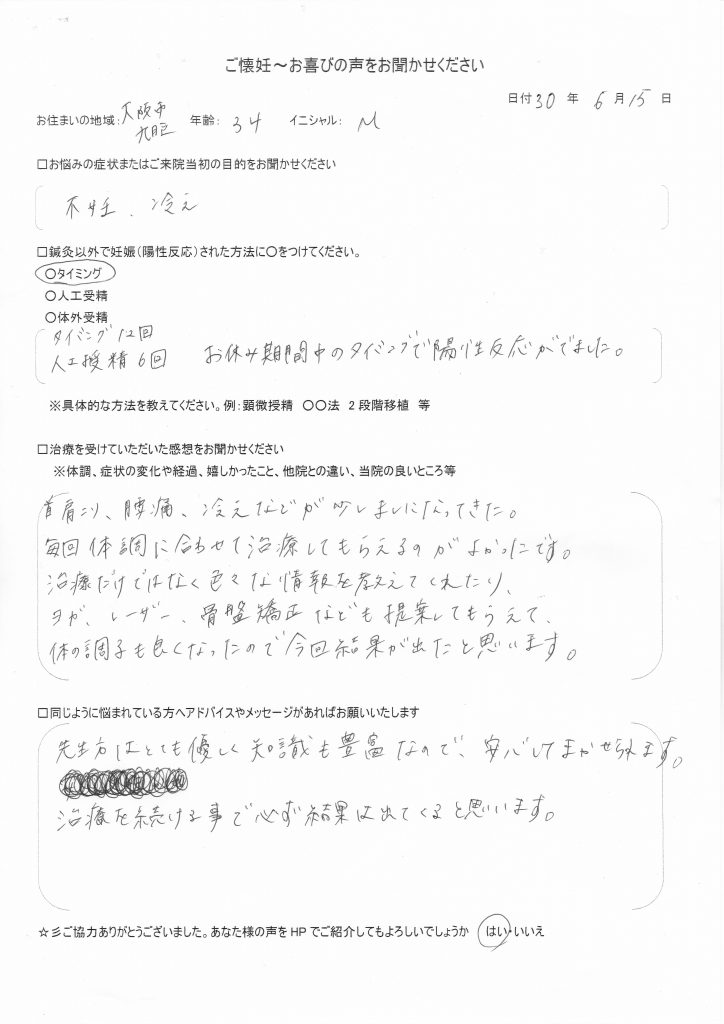 ご懐妊～お喜びの声をお聞かせください
日付 30 年 6 月 15 日
お住まいの地域: 大阪市 年齢: 34 イニシャル: M
□お悩みの症状またはご来院当初の目的をお聞かせください
不妊、冷え
□鍼灸以外で妊娠(陽性反応)された方法に○をつけてください。
○タイミング
○人工受精
○体外受精
タイミング 12回
人工授精 6回 お休み期間中のタイミングで陽性反応がでました。
※具体的な方法を教えてください。例:顕微授精 ○○法 2段階移植 等
□治療を受けていただいた感想をお聞かせください
※体調、症状の変化や経過、嬉しかったこと、他院との違い、当院の良いところ等
首肩こり、腰痛、冷えなどが少しましになってきた。
毎回体調に合わせて治療してもらえるのがよかったです。
治療だけではなく色々な情報を教えてくれたり、
ヨガ、レーザー、骨盤矯正なども提案してもらえて、
体の調子も良くなったので今回結果が出たと思います。
□同じように悩まれている方へアドバイスやメッセージがあればお願いいたします
先生方はとても優しく知識も豊富なので、安心してまかせられます。
治療を続ける事で必ず結果は出てくると思います。
☆彡ご協力ありがとうございました。あなた様の声をHPでご紹介してもよろしいでしょうか はい・いいえ